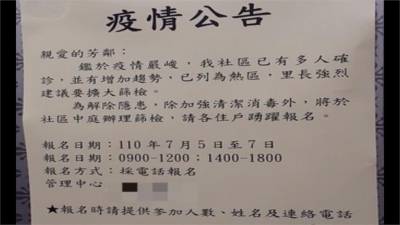 疫情公告
親愛的芳鄰：
鑑於疫情嚴峻，我社區已有多人確
診，並有增加趨勢，已列為熱區，里長強烈
建議要擴大篩檢。
為解除隱患，除加強清潔消毒外，將於
社區中庭辦理篩檢，請各住戶踴躍報名。
報名日期：110 年 7 月 5 日至 7 日
報名日期：0900-1200；1400-1800
報名方式：採電話報名
管理中心
★報名時請提供參加人數、姓名及連絡電話